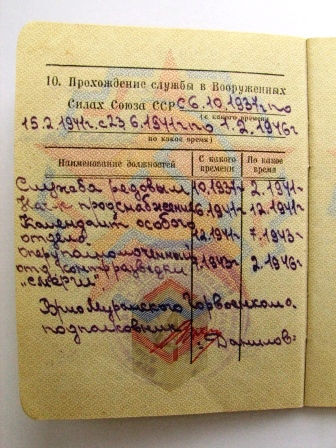 10. Прохождение службы в Вооруженных
Силах Союза ССР с 6.10.1937г. по
(с какого времени
15.2.1941г. с 23.6.1941г. по 1.2.1946г
по какое время)
Наименование должностей
С какого времени
По какое время
Служба рядовым 10.1937г 2.1941г
Нач. продснабжения 6.1941г 12.1941г
Комендант особого
отдела 12.1941г 7.1943г
Оперуполномоченный
отд. контрразведки 7.1943г 2.1946г
"Смерш"
Врио Муромского Горвоенкома
подполковник
Данилов